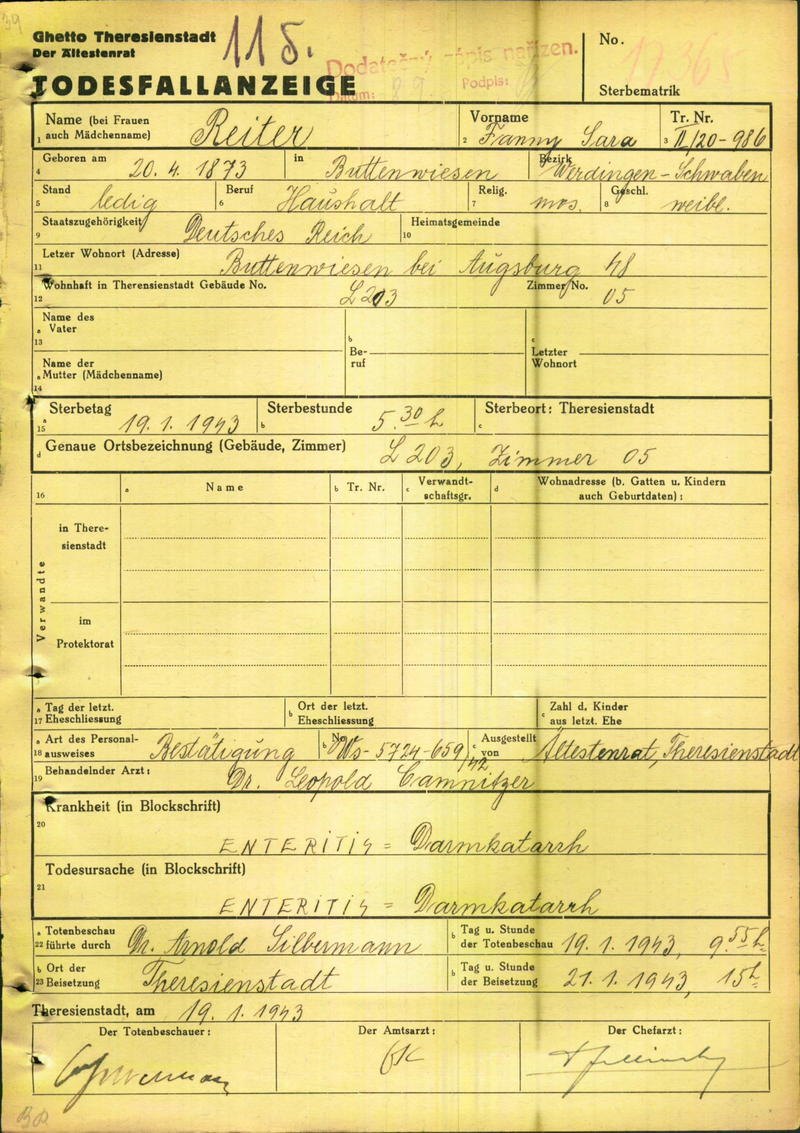 39
Ghetto Theresienstadt
Der Ältestenrat
115.
Dodatečný zápis nařízen.
Podpis:
No. 17365
TODESFALLANZEIGE
Sterbematrik
Name (bei Frauen auch Mädchenname) Reiter Vorname Fanny Sara Tr. Nr. II/20-986
1 2 3
4 Geboren am 20. 4. 1873 in Buttenwiesen Bezirk Werdingen-Schwaben
5 Stand ledig 6 Beruf Haushalt 7 Relig. mos. 8 Geschl. weibl.
9 Staatszugehörigkeit Deutsches Reich 10 Heimatsgemeinde
11 Letzer Wohnort (Adresse) Buttenwiesen bei Augsburg 48
12 Wohnhaft in Theresienstadt Gebäude No. L 203 Zimmer No. 05
13 a Name des Vater
14 a Name der Mutter (Mädchenname) b Be-ruf c Letzter Wohnort
15 a Sterbetag 19. 1. 1943 b Sterbestunde 5.30 h c Sterbeort: Theresienstadt
d Genaue Ortsbezeichnung (Gebäude, Zimmer) L 203, Zimmer 05
16 a Name b Tr. Nr. c Verwandt-schaftsgr. d Wohnadresse (b. Gatten u. Kindern auch Geburtdaten):
Verwandte
in There-sienstadt
im Protektorat
17 a Tag der letzt. Eheschliessung b Ort der letzt. Eheschliessung c Zahl d. Kinder aus letzt. Ehe
18 a Art des Personal-ausweises Bestätigung b No. Ws-5724-659/42 c Ausgestellt von Ältestenrat, Theresienstadt
19 Behandelnder Arzt: Dr. Leopold Camnitzer
20 Krankheit (in Blockschrift)
ENTERITIS = Darmkatarrh
21 Todesursache (in Blockschrift)
ENTERITIS = Darmkatarrh
22 a Totenbeschau führte durch Dr. Arnold Silbermann b Tag u. Stunde der Totenbeschau 19. 1. 1943, 9.55 h
23 b Ort der Beisetzung Theresienstadt b Tag u. Stunde der Beisetzung 21. 1. 1943, 15 h
Theresienstadt, am 19. 1. 1943
Der Totenbeschauer: Der Amtsarzt: Der Chefarzt: